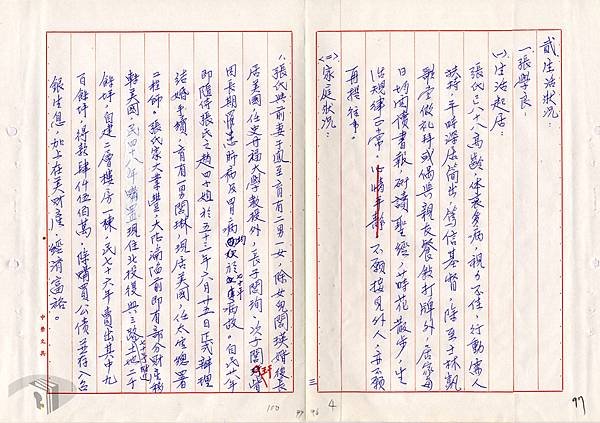 貳、生活狀況:
一、張學良:
(一)生活起居:
張氏已八八高齡,体衰多病,視力不佳,行動需人
扶持,平時深居簡出,篤信基督,除至士林凱
歌堂做礼拜或偶與親友餐敘打牌外,居家每
日均閱讀書報,研讀聖經,蒔花散步,生
活規律正常,心情平靜,不願接見外人,亦不願
再提往事。
(二)家庭狀況:
1、張氏與前妻于鳳至育有三男一女,除女兒閭瑛婚後長
居美國任史丹福大學教授外,長子閭珣、次子閭玗皆
因長期罹患肝病及胃病均於七十年病故。自民廿九年
即隨侍張氏之趙四小姐於五十三年六月廿五日正式辦理
結婚手續,育有一男閭琳,現居美國,任太空總署
工程師。張氏家大業豐,大陸淪陷前即有部分財產移
轉美國,民四十八年購置現住北投復興三路土地二千
餘坪,自建二層樓房一棟,民七十六年賣出其中九
百餘坪,得款肆仟伍佰萬,除購買公債並存入台
銀生息,加上在美財產,經濟富裕。
三
4
97
100
99
96